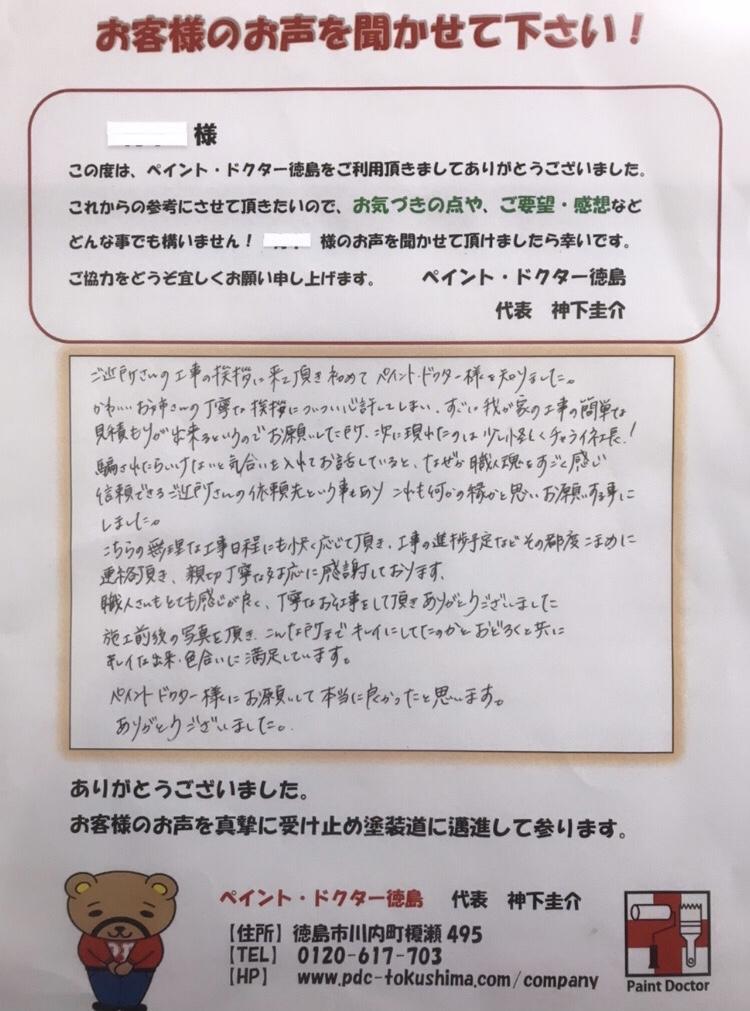 お客様のお声を聞かせて下さい！
様
この度は、ペイント・ドクター徳島をご利用頂きましてありがとうございました。
これからの参考にさせて頂きたいので、お気づきの点や、ご要望・感想など
どんな事でも構いません！ 様のお声を聞かせて頂けましたら幸いです。
ご協力をどうぞ宜しくお願い申し上げます。 ペイント・ドクター徳島
代表 神下圭介
ご近所さんの工事の挨拶に来て頂き初めてペイント・ドクター様を知りました。
かわいいお姉さんの丁寧な挨拶についつい心許してしまい、すごい我が家の工事の簡単な
見積もりが出来るというのでお願いした所、次に現れたのは少し怪しくチャライ社長！
騙されたらいけないと気合いを入れてお話していると、なぜか職人魂をすごく感じ
信頼できるご近所さんの依頼先という事もあり これも何かの縁かと思いお願いする事に
しました。
こちらの無理な工事日程にも快く応じて頂き、工事の進捗予定などその都度こまめに
連絡頂き、親切丁寧な対応に感謝しております。
職人さんもとても感じが良く、丁寧なお仕事をして頂きありがとうございました
施工前後の写真を頂き、こんな所までキレイにしてたのかとおどろくと共に
キレイな出来・色合いに満足しています。
ペイントドクター様にお願いして本当に良かったと思います。
ありがとうございました。
ありがとうございました。
お客様のお声を真摯に受け止め塗装道に邁進して参ります。
ペイント・ドクター徳島 代表 神下圭介
【住所】徳島市川内町榎瀬 495
【TEL】 0120-617-703
【HP】 www.pdc-tokushima.com/company
Paint Doctor